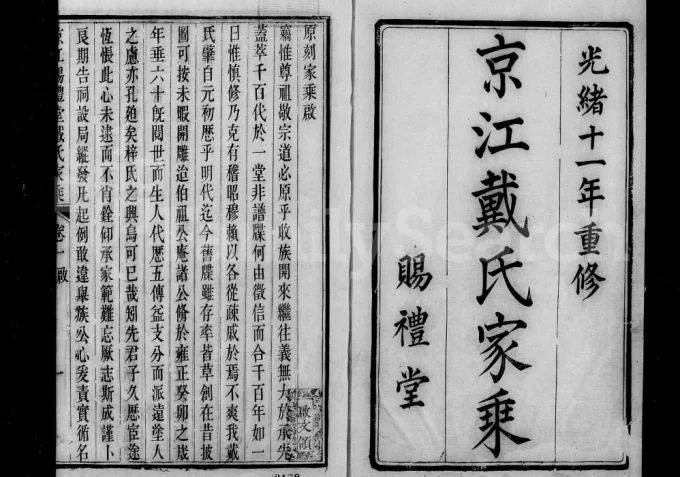 光緒十一年重修
京江戴氏家乘
賜禮堂
原刻家乘啟
竊惟尊祖敬宗道必原乎收族開來繼往義無大於承先
蓋萃千百代於一堂非譜牒何由徵信而合千百年如一
日惟慎修乃克有稽昭穆賴以各從疎戚於焉不爽我戴
氏肇自元初歷乎明代迄今舊牒雖存率皆草創在昔披
圖可按未暇開雕迨伯祖公庵諸公脩於雍正癸卯之歲
年垂六十旣閱世而生人代歷五傳益支分而派遠塗人
之慮亦孔廹矣梓氏之興烏可已哉矧先君子久歷宦途
恆悵此心未逮而不肖銓仰承家範難忘厥志斯成謹卜
良期告祠設局縱發凡起例敢違舉族公心爰責實循名
京江賜禮堂戴氏家乘
卷一
啟
一